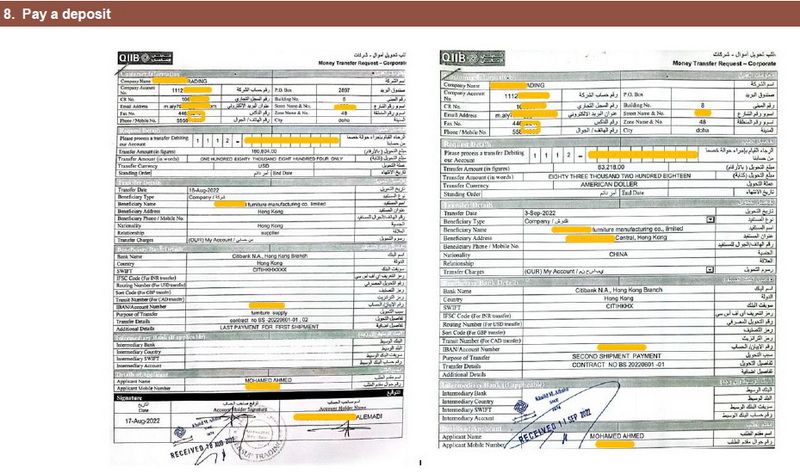 8. Pay a deposit
QIIB
طلب تحويل أموال - شركات
Money Transfer Request – Corporate
Customer Information
Company Name RADING اسم الشركة
Company Account No. 1112 رقم حساب الشركة P.O. Box 2897 صندوق البريد
CR No. رقم السجل التجاري Building No. 8 رقم المبنى
Email Address عنوان البريد الإلكتروني Street Name & No. اسم و رقم الشارع
Fax No. رقم الفاكس Zone Name & No. 48 اسم و رقم المنطقة
Phone / Mobile No. رقم الهاتف / الجوال City doha المدينة
Request Details
Please process a transfer Debiting our Account 1 1 1 2 - الرجاء القيام بإجراء حوالة خصما من حسابنا
Transfer Amount (in figures) مبلغ التحويل (بالأرقام)
Transfer Amount (in words) ONE HUNDRED EIGHTY THOUSAND EIGHT HUNDRED FOUR ONLY مبلغ التحويل (كتابة)
Transfer Currency USD عملة التحويل
Standing Order أمر دائم End Date تاريخ الانتهاء
Transfer Date 15-Aug-2022 تاريخ التحويل
Beneficiary Type Company / شركة نوع المستفيد
Beneficiary Name furniture manufacturing co. limited اسم المستفيد
Beneficiary Address Hong Kong عنوان المستفيد
Beneficiary Phone / Mobile No. رقم الهاتف/الجوال للمستفيد
Nationality Hong Kong الجنسية
Relationship supplier العلاقة
Transfer Charges (OUR) My Account رسوم التحويل
Beneficiary Bank Details
Bank Name Citibank N.A., Hong Kong Branch اسم البنك
Country Hong Kong الدولة
SWIFT CITIHKHXXX سويفت البنك
IFSC Code (For INR transfer)
Routing Number (For USD transfer) رقم التحويل المصرفي
Sort Code (For GBP transfer) رمز التصنيف
Transit Number (For CAD transfer) رمز الترانزيت
IBAN/Account Number رقم الآيبان/الحساب
Purpose of Transfer furniture supply سبب التحويل
Transfer Details contract no BS -20220601-01 , 02 تفاصيل التحويل
Additional Details LAST PAYMENT FOR FIRST SHIPMENT تفاصيل اضافية
Intermediary Bank (If applicable)
Intermediary Bank البنك الوسيط
Intermediary Country دولة البنك الوسيط
Intermediary SWIFT سويفت البنك الوسيط
Intermediary Account رقم حساب البنك الوسيط
Details of Applicant
Applicant Name MOHAMED AHMED اسم مقدم الطلب
Applicant Mobile Number رقم جوال مقدم الطلب
Signature التوقيع
التاريخ Date توقيع صاحب الحساب Account Holder Signature اسم صاحب الحساب Account Holder Name
17-Aug-2022 ALEMADI
RECEIVED 18 AUG 2022
QIIB
طلب تحويل أموال - شركات
Money Transfer Request – Corporate
Company Name ADING اسم الشركة
Company Account No. 1112 رقم حساب الشركة P.O. Box صندوق البريد
CR No. رقم السجل التجاري Building No. 8 رقم المبنى
Email Address عنوان البريد الإلكتروني Street Name & No. اسم و رقم الشارع
Fax No. رقم الفاكس Zone Name & No. 48 اسم و رقم المنطقة
Phone / Mobile No. رقم الهاتف / الجوال City doha المدينة
Request Details
Please process a transfer Debiting our Account 1 1 1 2 - الرجاء القيام بإجراء حوالة خصما من حسابنا
Transfer Amount (in figures) 83,218.00 مبلغ التحويل (بالأرقام)
Transfer Amount (in words) EIGHTY THREE THOUSAND TWO HUNDRED EIGHTEEN مبلغ التحويل (كتابة)
Transfer Currency AMERICAN DOLLER عملة التحويل
Standing Order أمر دائم End Date تاريخ الانتهاء
Transfer Date 3-Sep-2022 تاريخ التحويل
Beneficiary Type Company نوع المستفيد
Beneficiary Name furniture manufacturing co., limited اسم المستفيد
Beneficiary Address Central, Hong Kong عنوان المستفيد
Beneficiary Phone / Mobile No. رقم الهاتف/الجوال للمستفيد
Nationality CHINA الجنسية
Relationship العلاقة
Transfer Charges (OUR) My Account رسوم التحويل
Bank Name Citibank N.A., Hong Kong Branch اسم البنك
Country Hong Kong الدولة
SWIFT CITIHKHX سويفت البنك
IFSC Code (For INR transfer)
Routing Number (For USD transfer) رقم التحويل المصرفي
Sort Code (For GBP transfer) رمز التصنيف
Transit Number (For CAD transfer) رمز الترانزيت
IBAN/Account Number رقم الآيبان/الحساب
Purpose of Transfer SECOND SHIPMENT PAYMENT سبب التحويل
Transfer Details CONTRACT NO BS 20220601 -01 تفاصيل التحويل
Additional Details تفاصيل اضافية
Intermediary Bank (If applicable)
Intermediary Bank البنك الوسيط
Intermediary Country دولة البنك الوسيط
Intermediary SWIFT سويفت البنك الوسيط
Intermediary Account رقم حساب البنك الوسيط
Applicant Name MOHAMED AHMED اسم مقدم الطلب
Applicant Mobile Number رقم جوال مقدم الطلب
RECEIVED 11 SEP 2022